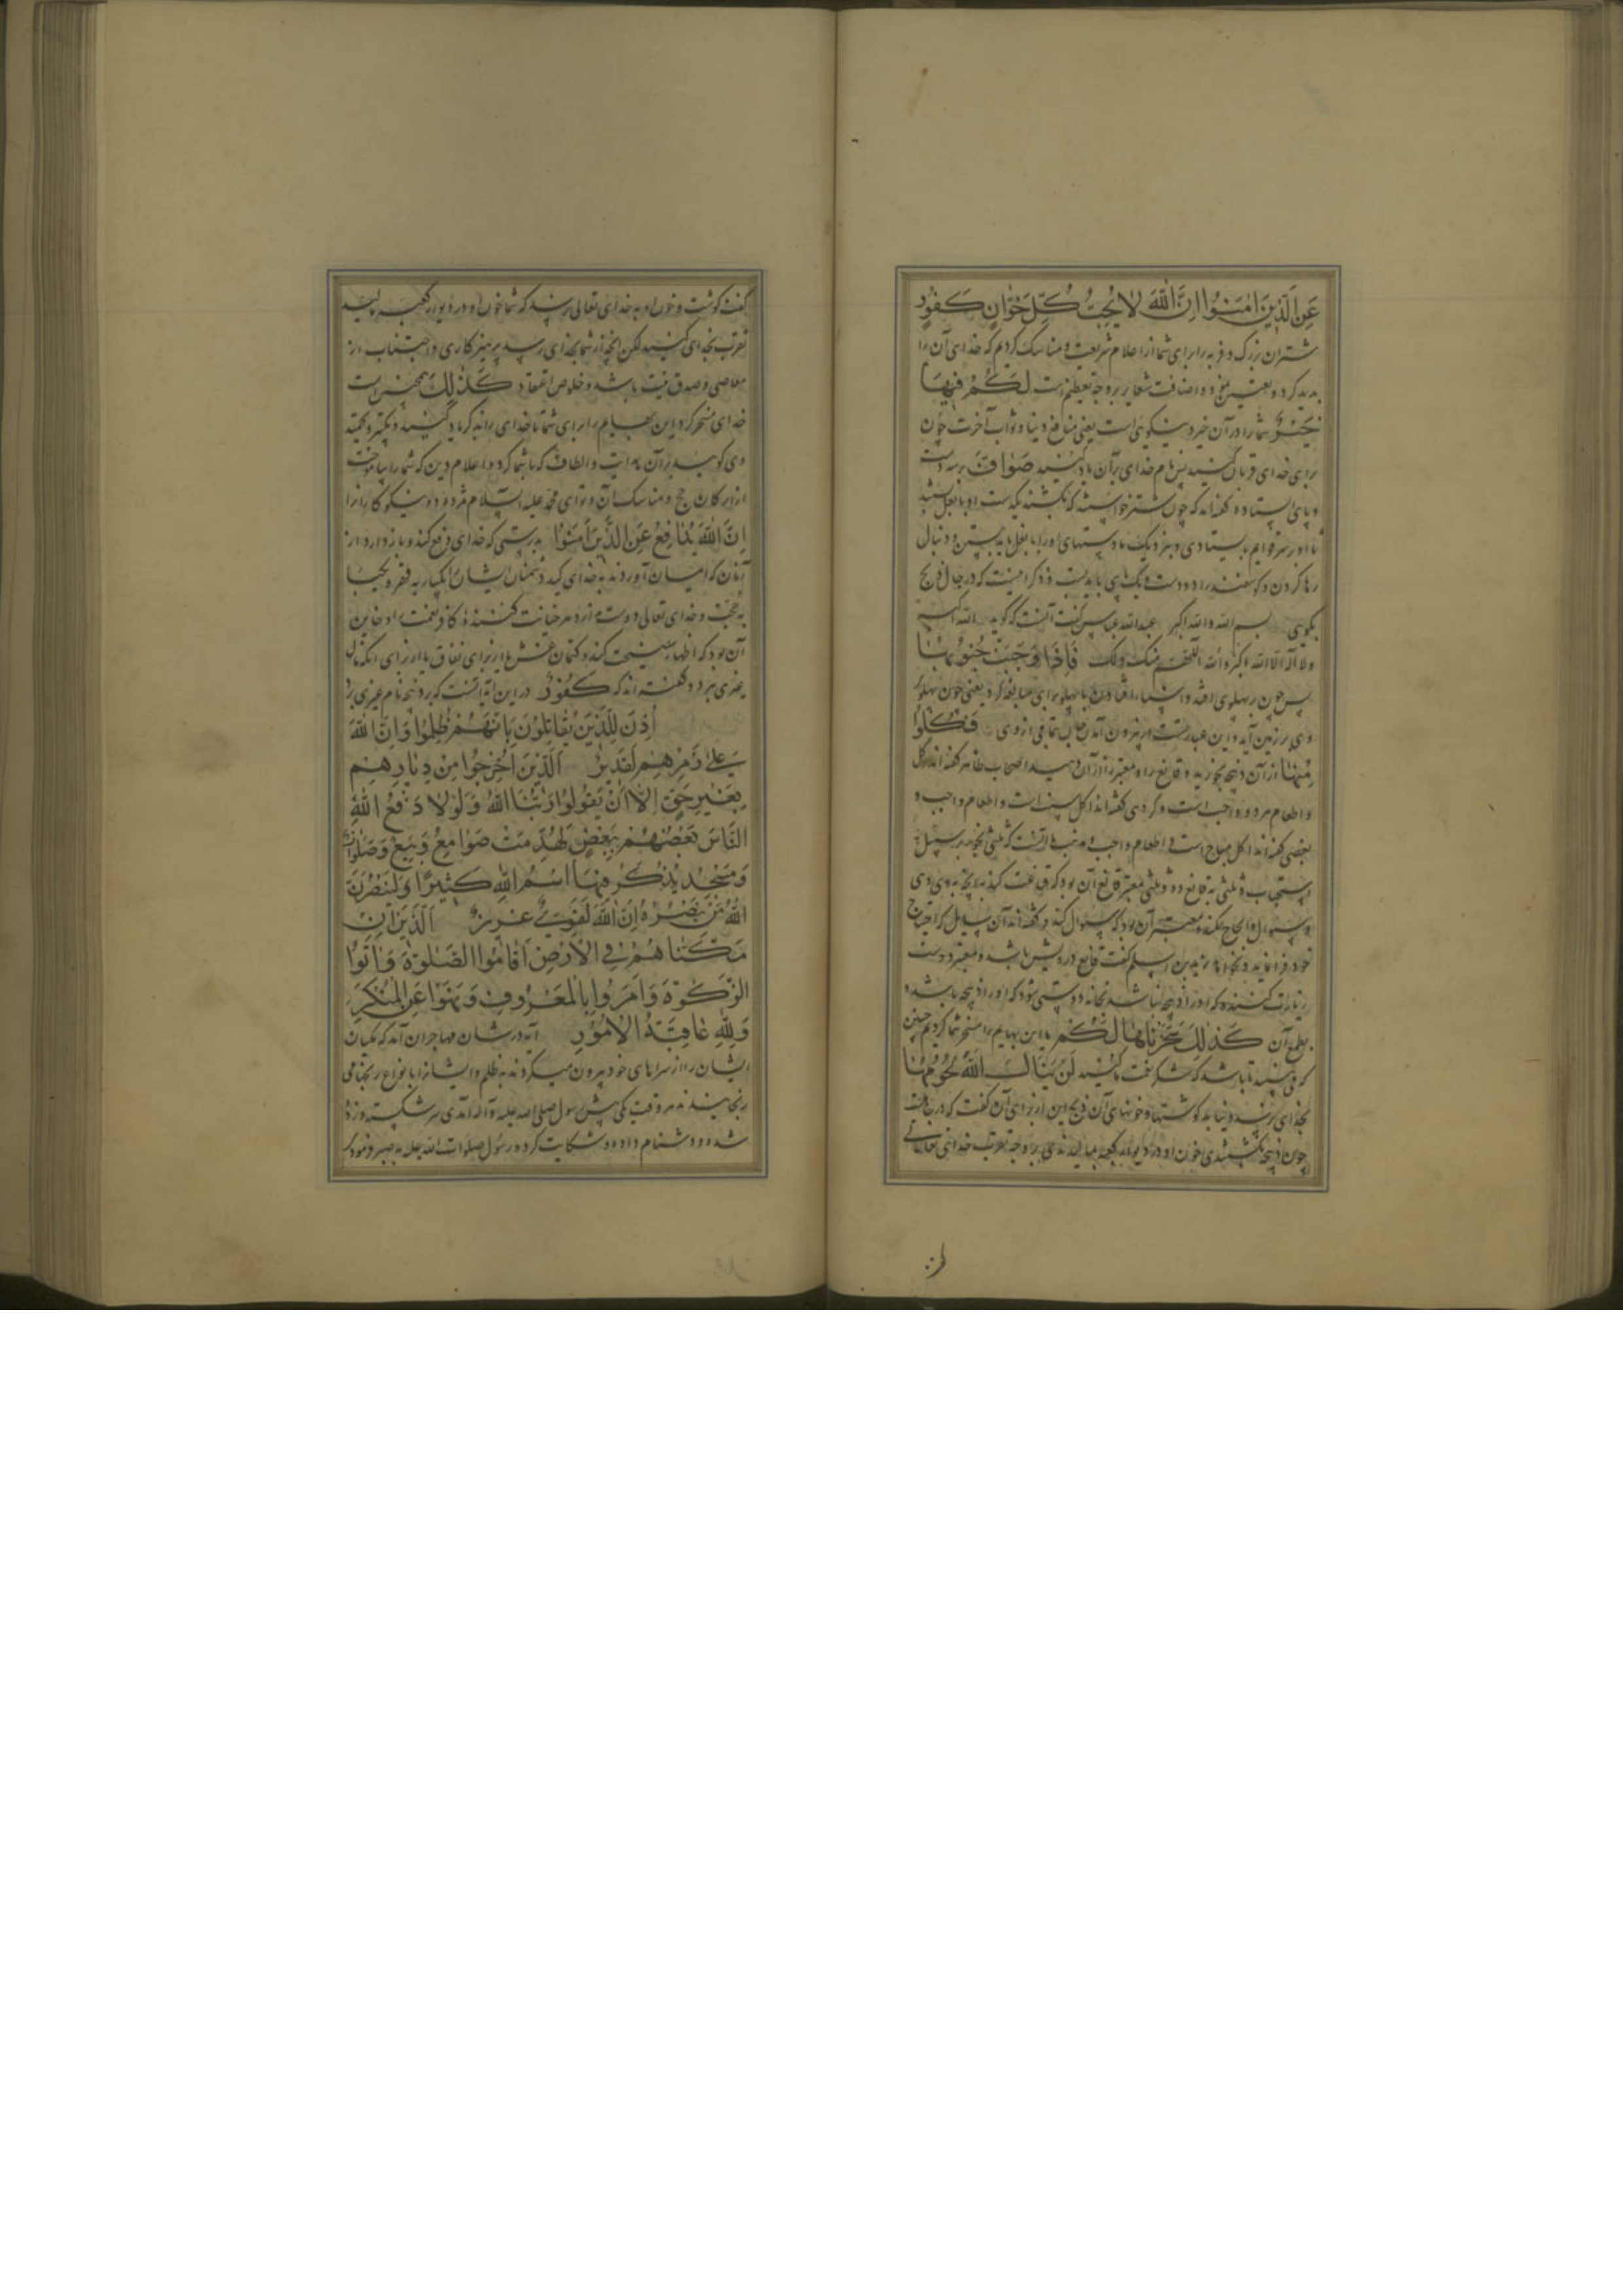 عَنِ الَّذِينَ اٰمَنُوا اِنَّ اللّٰهَ لا يُحِبُّ كُلَّ خَوّانٍ كَفُورٍ
شتران بزرگ و فربه را برای شما از اعلام شریعت و مناسک کردیم که خدای آن را
پدید کرد و تعیین نمود و اضافت شعایر بر وجه تعظیم است لَكُمْ فِيهَا
خَيْرٌ شما را در آن خیر و نیکویی است یعنی منافع دنیا و ثواب آخرت چون
برای خدای قربان کنید پس نام خدای بر آن یاد کنید صَوافَّ بر سه دست
و پای ایستاده و گفته‌اند که چون شتر خواستند که بکشند یکدست او با بغل بستند
تا او بر سر قوایم بایستادی و بنزدیک ما دستهای او را با بغل باید بستن و دنبال
رها کردن و گوسفند را دو دست و یک پای باید بست و ذکر اینست که در حال ذبح
بگویی بسم الله والله اکبر عبدالله عباس گفت آنست که گوید الله اکبر
ولا اله الا الله والله اکبر اللهم منک ولک فَاِذا وَجَبَتْ جُنُوبُها
پس چون بر پهلوی افتد
وی بر زمین آید و این عبارتست از بیرون آمدن جان بتمامی از وی فَكُلُوا
مِنْها از آن ذبیحه بخورید و قانع را و معتر را از آن دهید اصحاب ظاهر گفته‌اند اکل
و اطعام هر دو واجب است و گروهی گفته‌اند اکل سنت است و اطعام واجب و
بعضی گفته‌اند اکل مباح است و اطعام واجب و مذهب ما آنست که ثلثی بخورد بر سبیل
استحباب و ثلثی به قانع دهد و ثلثی بمعتر قانع آن بود که قناعت کند به آنچه به وی دهی
و سؤال و الحاح نکند و معتر آن بود که سؤال کند و گفته‌اند آن سایل که احتیاج
خود فرا نماید و نخواهد زید بن اسلم گفت قانع درویش باشد و معتر دوست
زیارت کننده که او را ذبیحه نباشد بخانه دوستی شود که او را ذبیحه باشد
بطمع آن كَذٰلِكَ سَخَّرْناها لَكُمْ ما این بهایم را مسخر شما کردیم چنین
که می‌بینید تا باشد که شکر نعمت ما کنید لَنْ يَنالَ اللّٰهَ لُحُومُها
بخدای نرسد و نیاید گوشتها و خونهای آن ذبح این از برای آن گفت که در جاهلیت
چون ذبیحه بکشتندی خون او در دیوار کعبه مالیدندی بر وجه تقرب خدای تعالی
گفت گوشت و خون او به خدای تعالی نرسد که شما خون او در دیوار کعبه مالید
تقرب بخدای کنید لکن آنچه از شما بخدای رسد پرهیزکاری و اجتناب از
معاصی و صدق نیت باشد و خلوص اعتقاد كَذٰلِكَ همچنین است
خدای مسخر کرد این بهایم را از برای شما تا خدای را ذکر و یاد کنید و تکبیر و تحمید
وی گویید بر آن هدایت و الطاف که با شما کرد و اعلام دین که شما را بیاموخت
از ارکان حج و مناسک آن و تو ای محمد علیه السلام مژده ده نیکوکاران را
اِنَّ اللّٰهَ يُدافِعُ عَنِ الَّذِينَ اٰمَنُوا بدرستی که خدای دفع کند و باز دارد از
آنان که ایمان آوردند به خدای کید دشمنان ایشان یکبار به قهر و یکبار
به حجت و خدای تعالی دوست ندارد هر خیانت کننده کافر نعمت را و خاین
آن بود که اظهار نصیحت کند و کتمان غش یا از برای نفاق یا از برای آنکه مال
غیری برد و گفته‌اند که كَفُورٌ در این آیه آنست که بر ذبیحه نام غیری برد
اُذِنَ لِلَّذِينَ يُقاتَلُونَ بِاَنَّهُمْ ظُلِمُوا وَاِنَّ اللّٰهَ
عَلىٰ نَصْرِهِمْ لَقَدِيرٌ الَّذِينَ اُخْرِجُوا مِنْ دِيارِهِمْ
بِغَيْرِ حَقٍّ اِلّا اَنْ يَقُولُوا رَبُّنَا اللّٰهُ وَلَوْلا دَفْعُ اللّٰهِ
النّاسَ بَعْضَهُمْ بِبَعْضٍ لَهُدِّمَتْ صَوامِعُ وَبِيَعٌ وَصَلَواتٌ
وَمَسٰجِدُ يُذْكَرُ فِيهَا اسْمُ اللّٰهِ كَثِيرًا وَلَيَنْصُرَنَّ
اللّٰهُ مَنْ يَنْصُرُهُ اِنَّ اللّٰهَ لَقَوِيٌّ عَزِيزٌ الَّذِينَ اِنْ
مَكَّنّاهُمْ فِي الْاَرْضِ اَقامُوا الصَّلوٰةَ وَاٰتَوُا
الزَّكوٰةَ وَاَمَرُوا بِالْمَعْرُوفِ وَنَهَوْا عَنِ الْمُنْكَرِ
وَلِلّٰهِ عاقِبَةُ الْاُمُورِ آیه در شان مهاجران آمد که مکیان
ایشان را از سراهای خود بیرون میکردند به ظلم و ایشان را بانواع رنجها می
رنجانیدند هر وقت یکی پیش رسول صلی الله علیه وآله آمدی سر شکسته و زده
شده و دشنام داده و شکایت کرد و رسول صلوات الله علیه به صبر فرمود